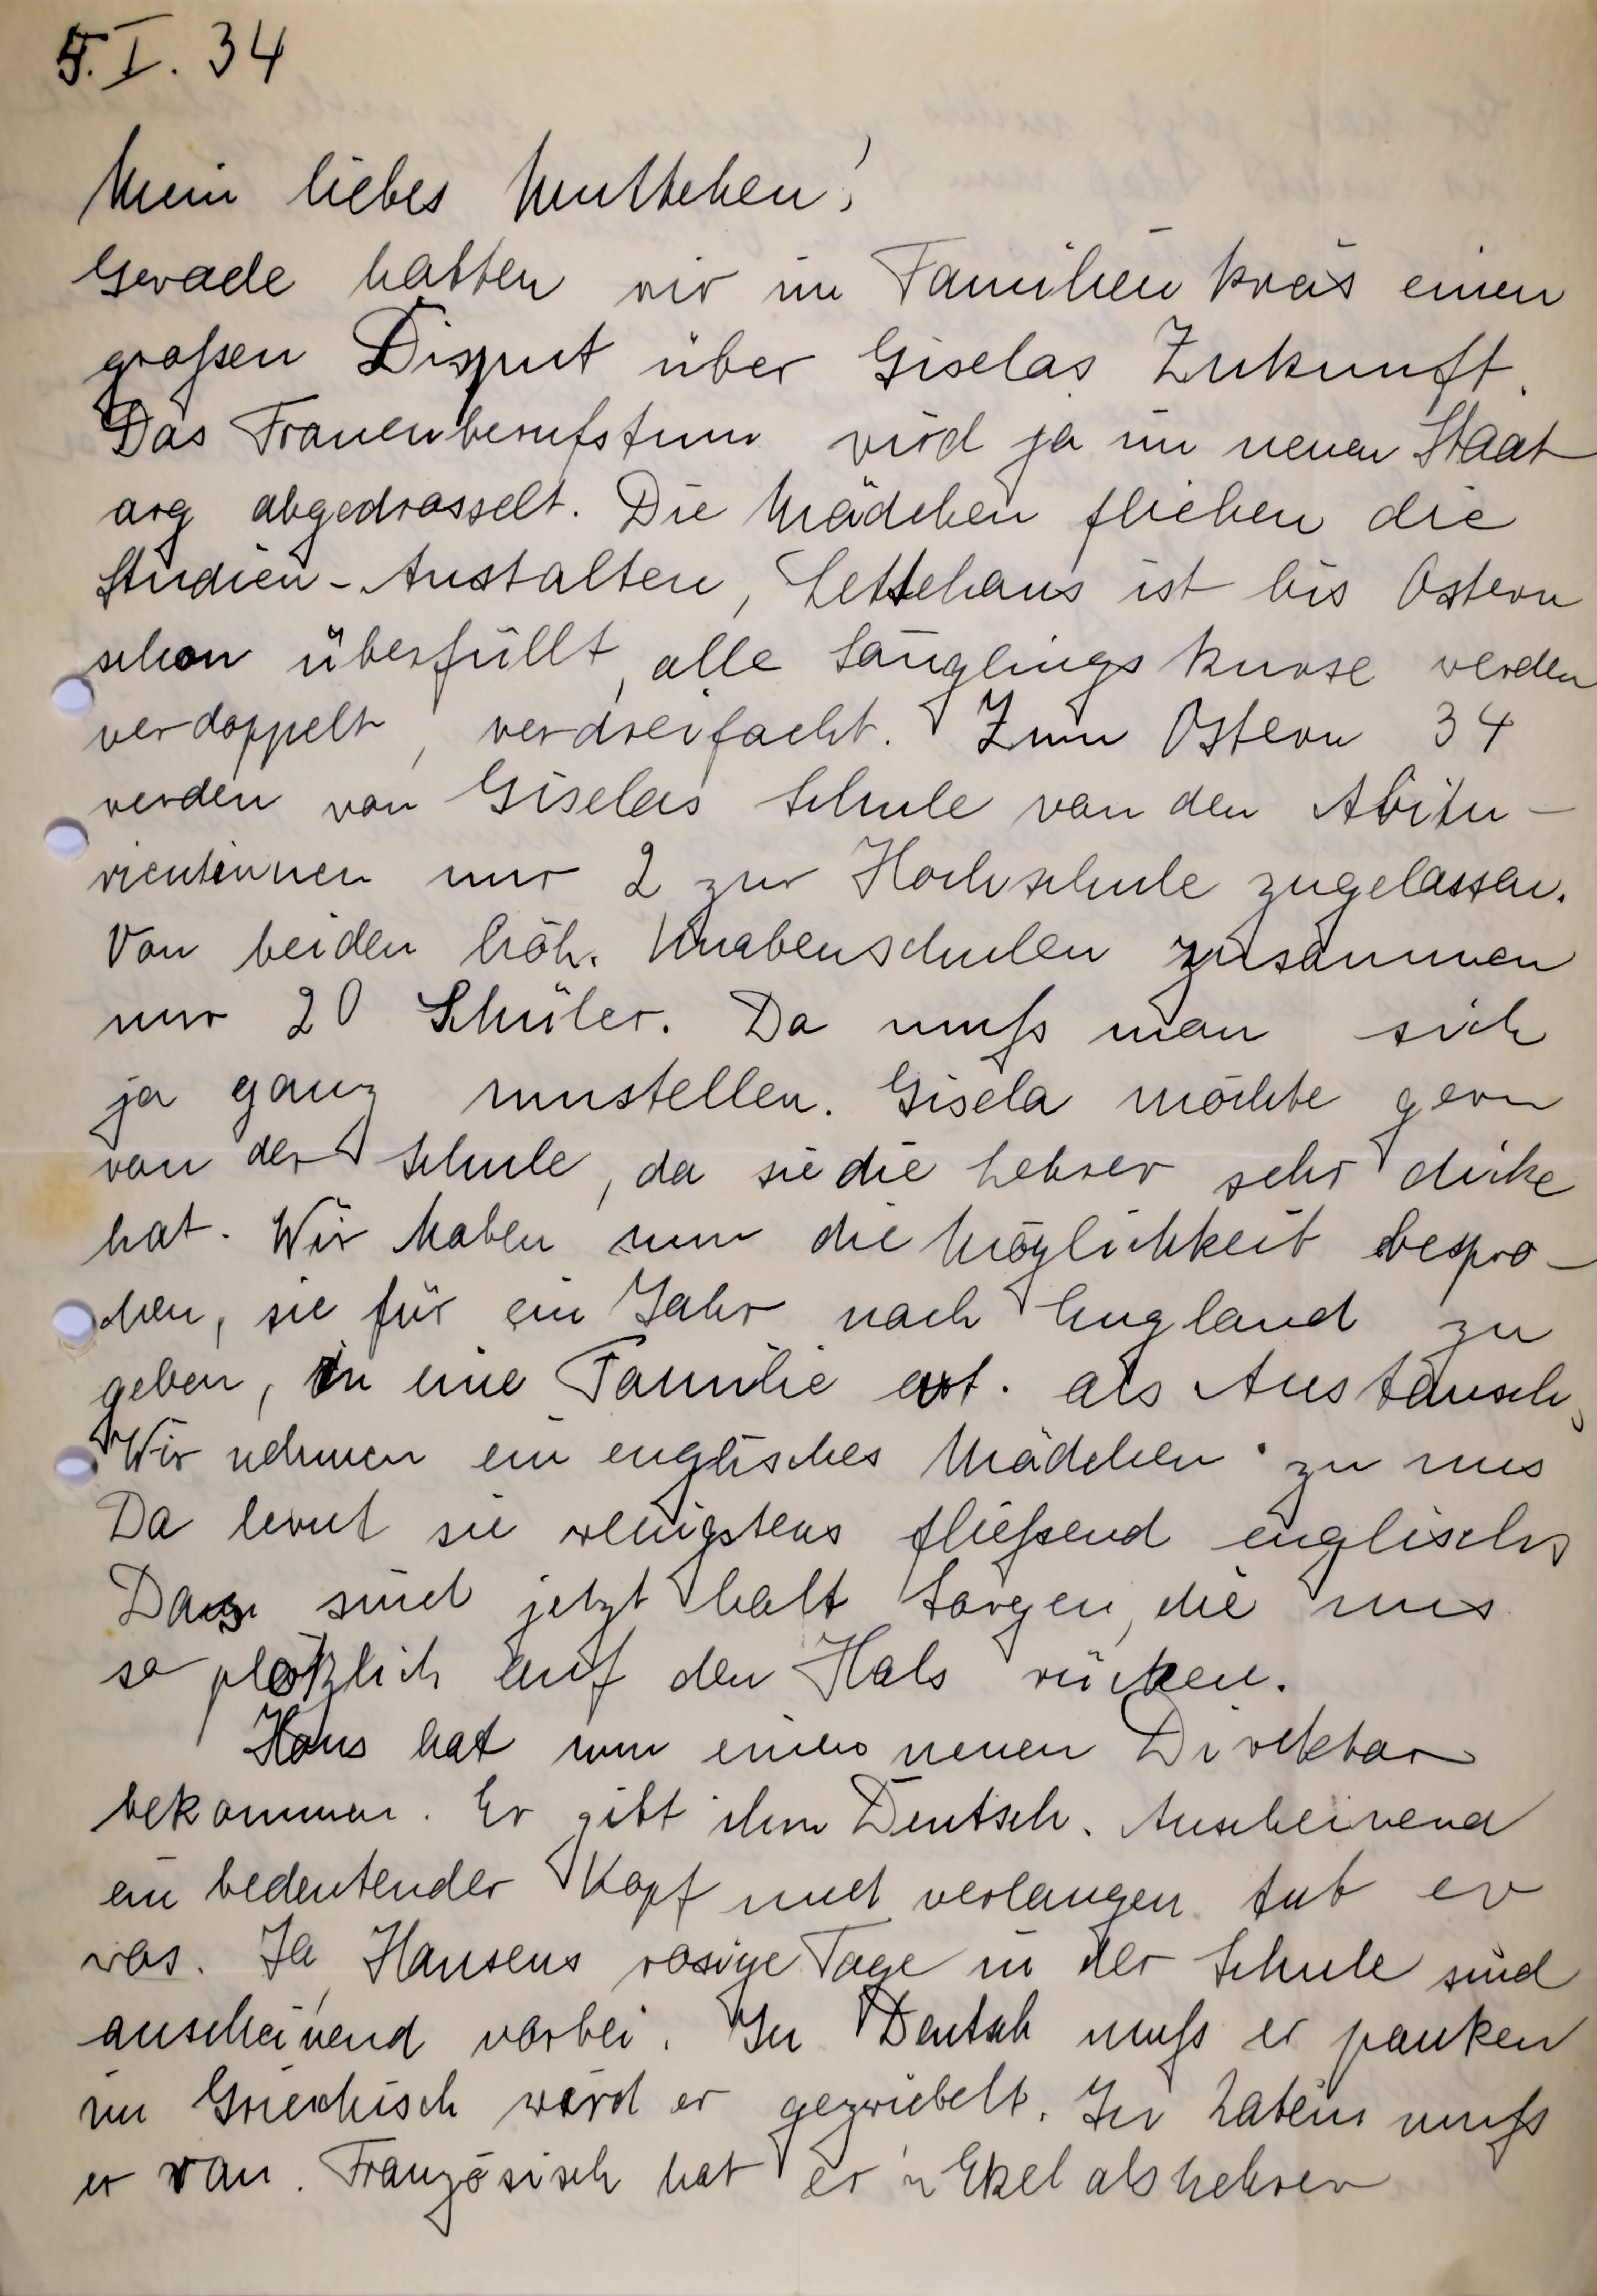 5. I. 34
Mein liebes Muttchen!
Gerade hatten wir im Familienkreis einen
großen Disput über Giselas Zukunft.
Das Frauenberufstum wird ja im neuen Staat
arg abgedrosselt. Die Mädchen fliehen die
Studien-Anstalten, Lettehaus ist bis Ostern
schon überfüllt, alle Säuglingskurse werden
verdoppelt, verdreifacht. Zum Ostern 34
werden von Giselas Schule von den Abitu-
rientinnen nur 2 zur Hochschule zugelassen.
Von beiden höh. Knabenschulen zusammen
nur 20 Schüler. Da muß man sich
ja ganz umstellen. Gisela möchte gern
von der Schule, da sie die Lehrer sehr dicke
hat. Wir haben nun die Möglichkeit bespro-
chen, sie für ein Jahr nach England zu
geben, in eine Familie evt. als Austausch,
Wir nehmen ein englisches Mädchen zu uns
Da lernt sie wenigstens fließend englisch
Das sind jetzt halt Sorgen, die uns
so plötzlich auf den Hals rücken.
Hans hat nun einen neuen Direktor
bekommen. Er gibt ihm Deutsch. Anscheinend
ein bedeutender Kopf und verlangen tut er
was. Ja, Hansens rosige Tage in der Schule sind
anscheinend vorbei. In Deutsch muß er pauken
im Griechisch wird er gezwiebelt. In Latein muß
er ran. Französisch hat er 'n Ekel als Lehrer